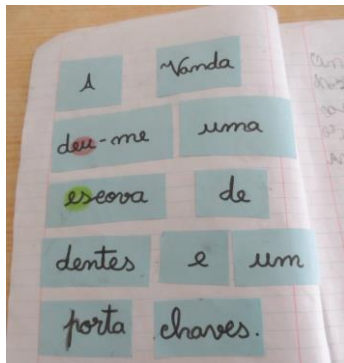 A Vanda
deu-me uma
escova de
dentes e um
porta chaves.